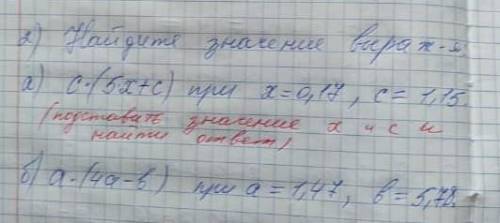 2) Найдите значение выраж-я.
а) c·(5x+c) при x=0,17, c=1,15.
(подставить значение x и c и
найти ответ)
б) a·(4a-b) при a=1,47, b=5,78.